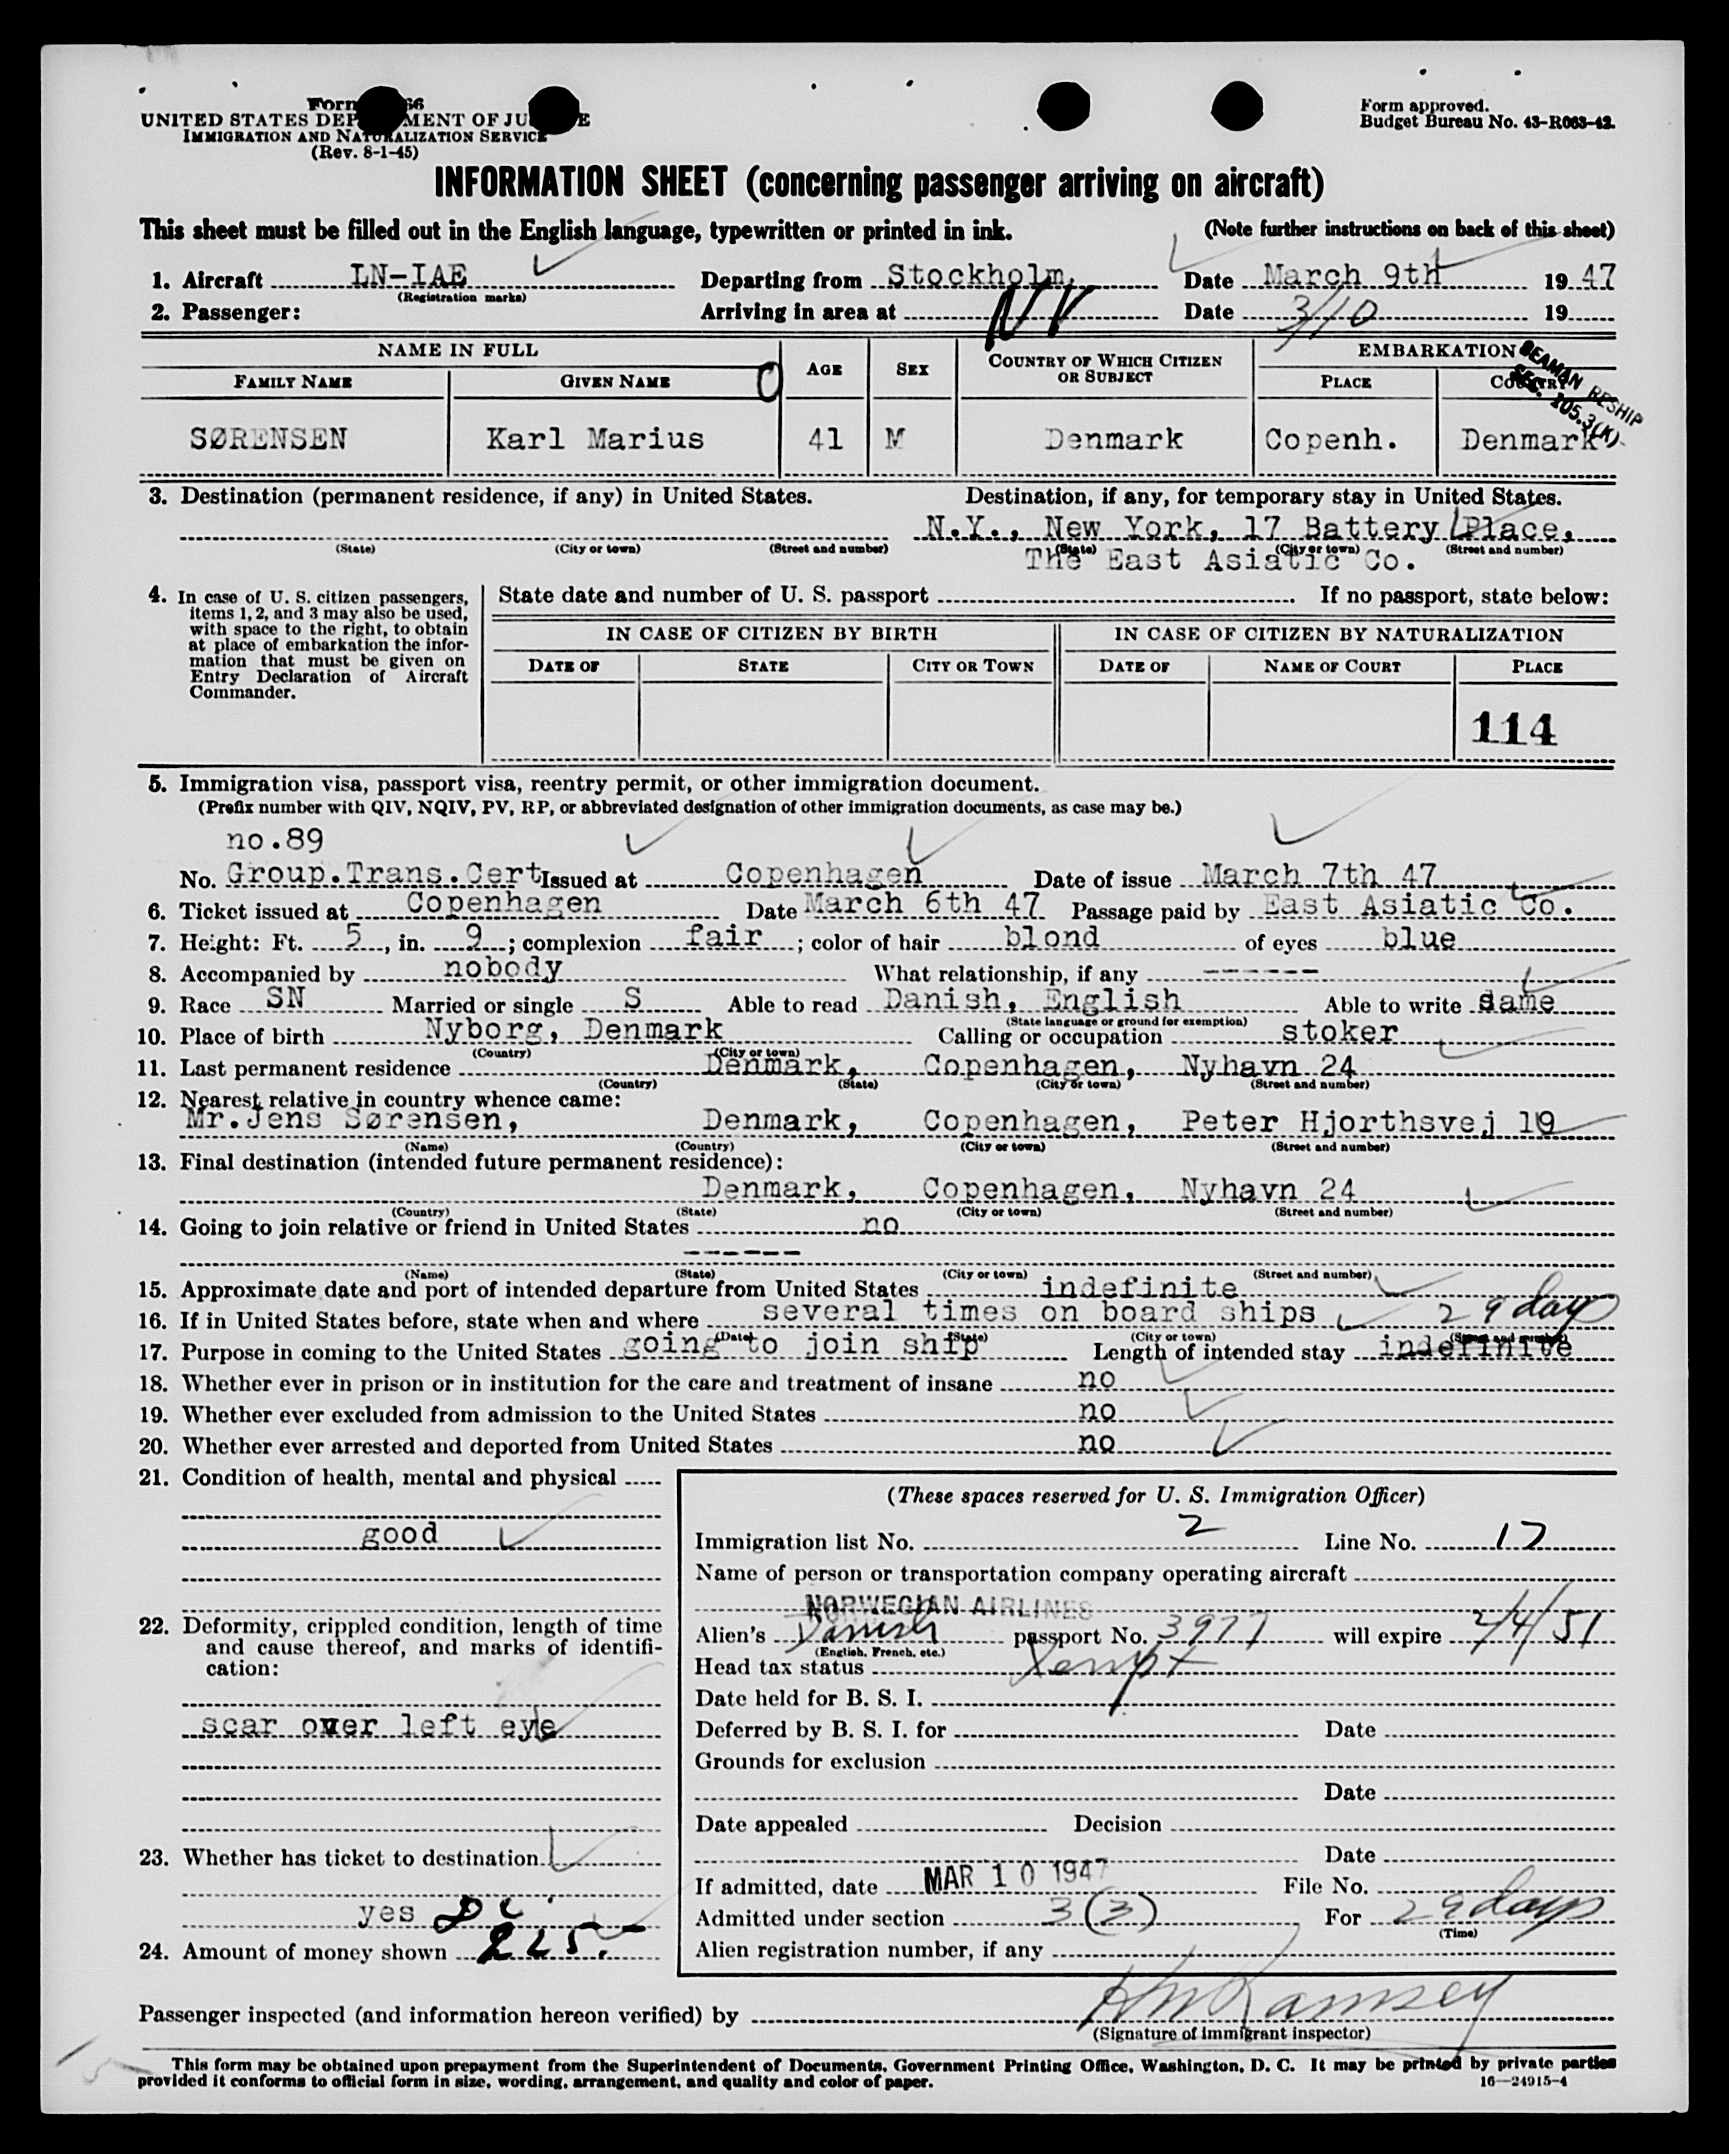 Form 66
UNITED STATES DEP MENT OF JU E
IMMIGRATION AND NATURALIZATION SERVICE
(Rev. 8-1-45)
Form approved.
Budget Bureau No. 43-R063-42.
INFORMATION SHEET (concerning passenger arriving on aircraft)
This sheet must be filled out in the English language, typewritten or printed in ink. (Note further instructions on back of this sheet)
1. Aircraft LN-IAE Departing from Stockholm, Date March 9th 19 47
(Registration marks)
2. Passenger: Arriving in area at NY Date 3/10 19
NAME IN FULL AGE SEX COUNTRY OF WHICH CITIZEN OR SUBJECT EMBARKATION
FAMILY NAME GIVEN NAME PLACE COUNTRY
SEAMAN RESHIP
SEC. 105.3(K)
SØRENSEN Karl Marius 41 M Denmark Copenh. Denmark
3. Destination (permanent residence, if any) in United States. Destination, if any, for temporary stay in United States.
N.Y., New York, 17 Battery Place,
(State) (City or town) (Street and number) (State) (City or town) (Street and number)
The East Asiatic Co.
4. In case of U. S. citizen passengers, items 1, 2, and 3 may also be used, with space to the right, to obtain at place of embarkation the information that must be given on Entry Declaration of Aircraft Commander.
State date and number of U. S. passport If no passport, state below:
IN CASE OF CITIZEN BY BIRTH IN CASE OF CITIZEN BY NATURALIZATION
DATE OF STATE CITY OR TOWN DATE OF NAME OF COURT PLACE
114
5. Immigration visa, passport visa, reentry permit, or other immigration document.
(Prefix number with QIV, NQIV, PV, RP, or abbreviated designation of other immigration documents, as case may be.)
no.89
No. Group.Trans.Cert Issued at Copenhagen Date of issue March 7th 47
6. Ticket issued at Copenhagen Date March 6th 47 Passage paid by East Asiatic Co.
7. Height: Ft. 5, in. 9; complexion fair; color of hair blond of eyes blue
8. Accompanied by nobody What relationship, if any ------
9. Race SN Married or single S Able to read Danish, English Able to write same
(State language or ground for exemption)
10. Place of birth Nyborg, Denmark Calling or occupation stoker
(Country) (City or town)
11. Last permanent residence Denmark, Copenhagen, Nyhavn 24
(Country) (State) (City or town) (Street and number)
12. Nearest relative in country whence came:
Mr.Jens Sørensen, Denmark, Copenhagen, Peter Hjorthsvej 19
(Name) (Country) (City or town) (Street and number)
13. Final destination (intended future permanent residence):
Denmark, Copenhagen, Nyhavn 24
(Country) (State) (City or town) (Street and number)
14. Going to join relative or friend in United States no
------
(Name) (State) (City or town) (Street and number)
15. Approximate date and port of intended departure from United States indefinite
16. If in United States before, state when and where several times on board ships 29 days
(Date) (State) (City or town) (Street and number)
17. Purpose in coming to the United States going to join ship Length of intended stay indefinite
18. Whether ever in prison or in institution for the care and treatment of insane no
19. Whether ever excluded from admission to the United States no
20. Whether ever arrested and deported from United States no
21. Condition of health, mental and physical
good
22. Deformity, crippled condition, length of time and cause thereof, and marks of identification:
scar over left eye
23. Whether has ticket to destination
yes
24. Amount of money shown 225.-
(These spaces reserved for U. S. Immigration Officer)
Immigration list No. 2 Line No. 17
Name of person or transportation company operating aircraft
NORWEGIAN AIRLINES
Alien's Danish passport No. 3977 will expire 2/4/51
(English, French, etc.)
Head tax status Xempt
Date held for B. S. I.
Deferred by B. S. I. for Date
Grounds for exclusion
Date
Date appealed Decision
Date
If admitted, date MAR 10 1947 File No.
Admitted under section 3(3) For 29 days
(Time)
Alien registration number, if any
Passenger inspected (and information hereon verified) by HM Ramsey
(Signature of immigrant inspector)
This form may be obtained upon prepayment from the Superintendent of Documents, Government Printing Office, Washington, D. C. It may be printed by private parties
provided it conforms to official form in size, wording, arrangement, and quality and color of paper. 16—24915-4